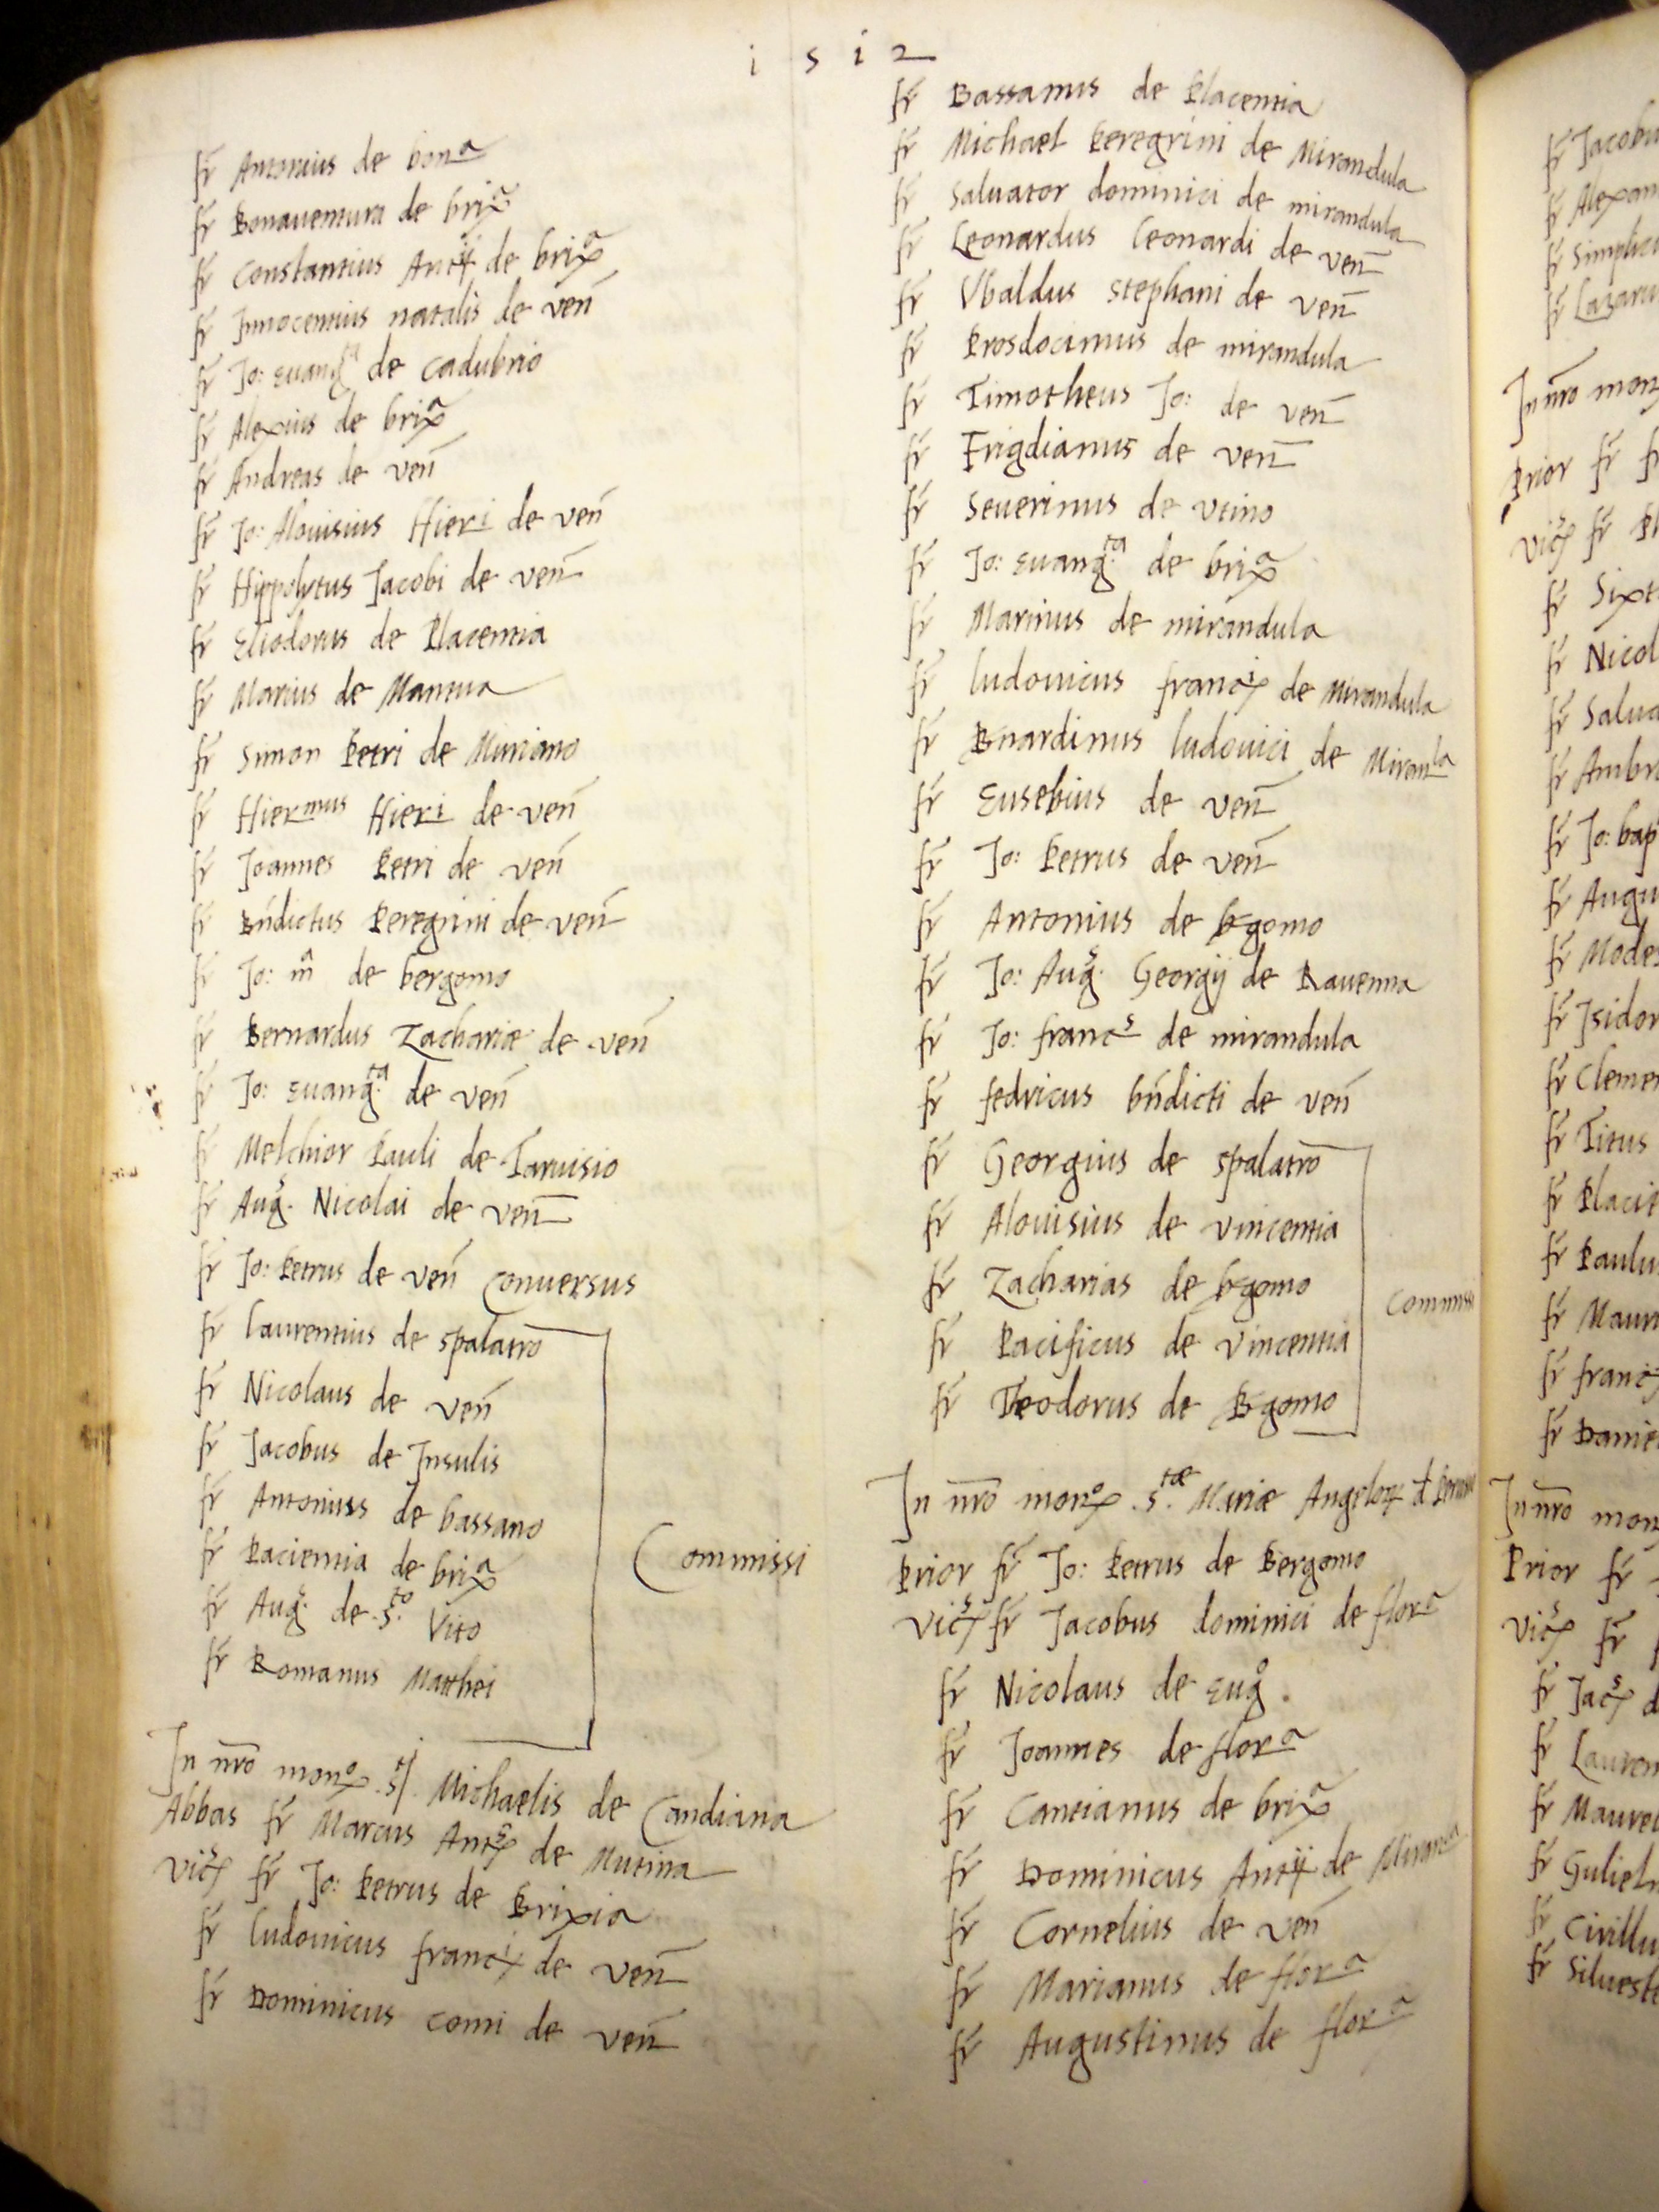 i s i 2
fr Antonius de bonª
fr Bonauentura de brixª
fr Constantius Antij de brixª
fr Innocentius natalis de ven̄
fr Jo: euang^ta de Cadubrio
fr Alexius de brixª
fr Andreas de ven̄
fr Jo: Alouisius Hier.i de ven̄
fr Hippolytus Jacobi de ven̄
fr Eliodorus de Placentia
fr Marius de Mantua
fr Simon Petri de Muriano
fr Hier.mus Hier.i de ven̄
fr Joannes Petri de ven̄
fr Bn̄dictus Peregrini de ven̄
fr Jo: mª de bergomo
fr Bernardus Zachariæ de ven̄
fr Jo: euang^ta de ven̄
fr Melchior Pauli de Taruisio
fr Aug^s. Nicolai de ven̄
fr Jo: Petrus de ven̄ Conuersus
fr laurentius de spalatro
fr Nicolaus de ven̄
fr Jacobus de Insulis
fr Antonius de bassano
fr Pacientia de brixª
fr Aug^s. de .s.^to Vito
fr Romanus Matthei
Commissi
In nr̄o monº .s^ti. Michaelis de Candiana
Abbas fr Marcus Ant^s de Mutina
Vic^s fr Jo: Petrus de Brixia
fr ludouicus franc^i de ven̄
fr Dominicus Comi de ven̄
fr Bassanus de Placentia
fr Michael Peregrini de Mirandula
fr Saluator dominici de mirandula
fr Leonardus leonardi de ven̄
fr Vbaldus stephani de ven̄
fr Prosdocimus de mirandula
fr Timotheus Jo: de ven̄
fr Frigdianus de ven̄
fr Seuerinus de vtino
fr Jo: euang.^ta de brixª
fr Marinus de mirandula
fr ludouicus franc^i de Mirandula
fr Bnardinus ludouici de Miran^la
fr Eusebius de ven̄
fr Jo: Petrus de ven̄
fr Antonius de bgomo
fr Jo: Aug^s. Georgij de Rauenna
fr Jo: franc^s de mirandula
fr fedricus bn̄dicti de ven̄
fr Georgius de spalatro
fr Alouisius de vincentia
fr Zacharias de bgomo
fr Pacificus de Vincentia
fr Teodorus de Bgomo
Commissi
In nr̄o monº .s.^tæ Mariæ Angeloꝝ
Prior fr Jo: Petrus de Bergomo
Vic^s fr Jacobus dominici de florª
fr Nicolaus de Eugº.
fr Joannes de florª
fr Cantianus de brixª
fr Dominicus Antij de Miranª
fr Cornelius de ven̄
fr Marianus de florª
fr Augustinus de florª
In nr̄o mon
Prior fr
vic^s fr
fr Nicol
fr Salua
fr Ambr
fr Jo: bap
fr Augu
fr Modes
fr Isidor
fr Clemen
fr Titus
fr Placit
fr Paulu
fr Mauri
fr franc
fr Danie
In nr̄o mon
Prior fr
Vic^s fr
fr Jac^s d
fr Lauren
fr Maure
fr Guliel
fr Cirillu
fr Siluest